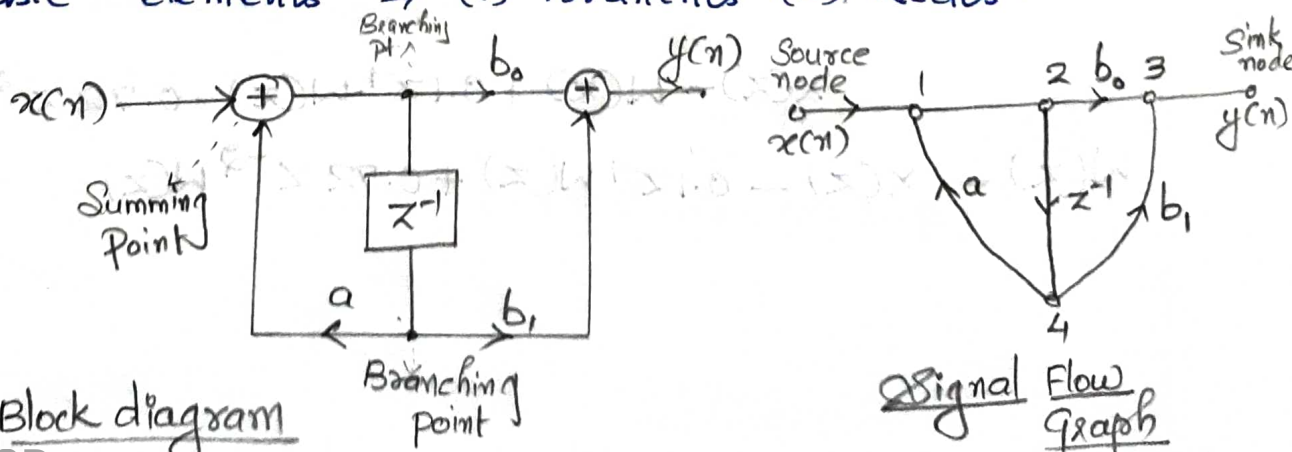 Branching
pt
b₀
y(n)
x(n)
+
+
Summing
Point
z⁻¹
a
b₁
Branching
point
Block diagram
Source
node
x(n)
1
2
b₀
3
Sink
node
y(n)
a
z⁻¹
b₁
4
Signal Flow
Graph